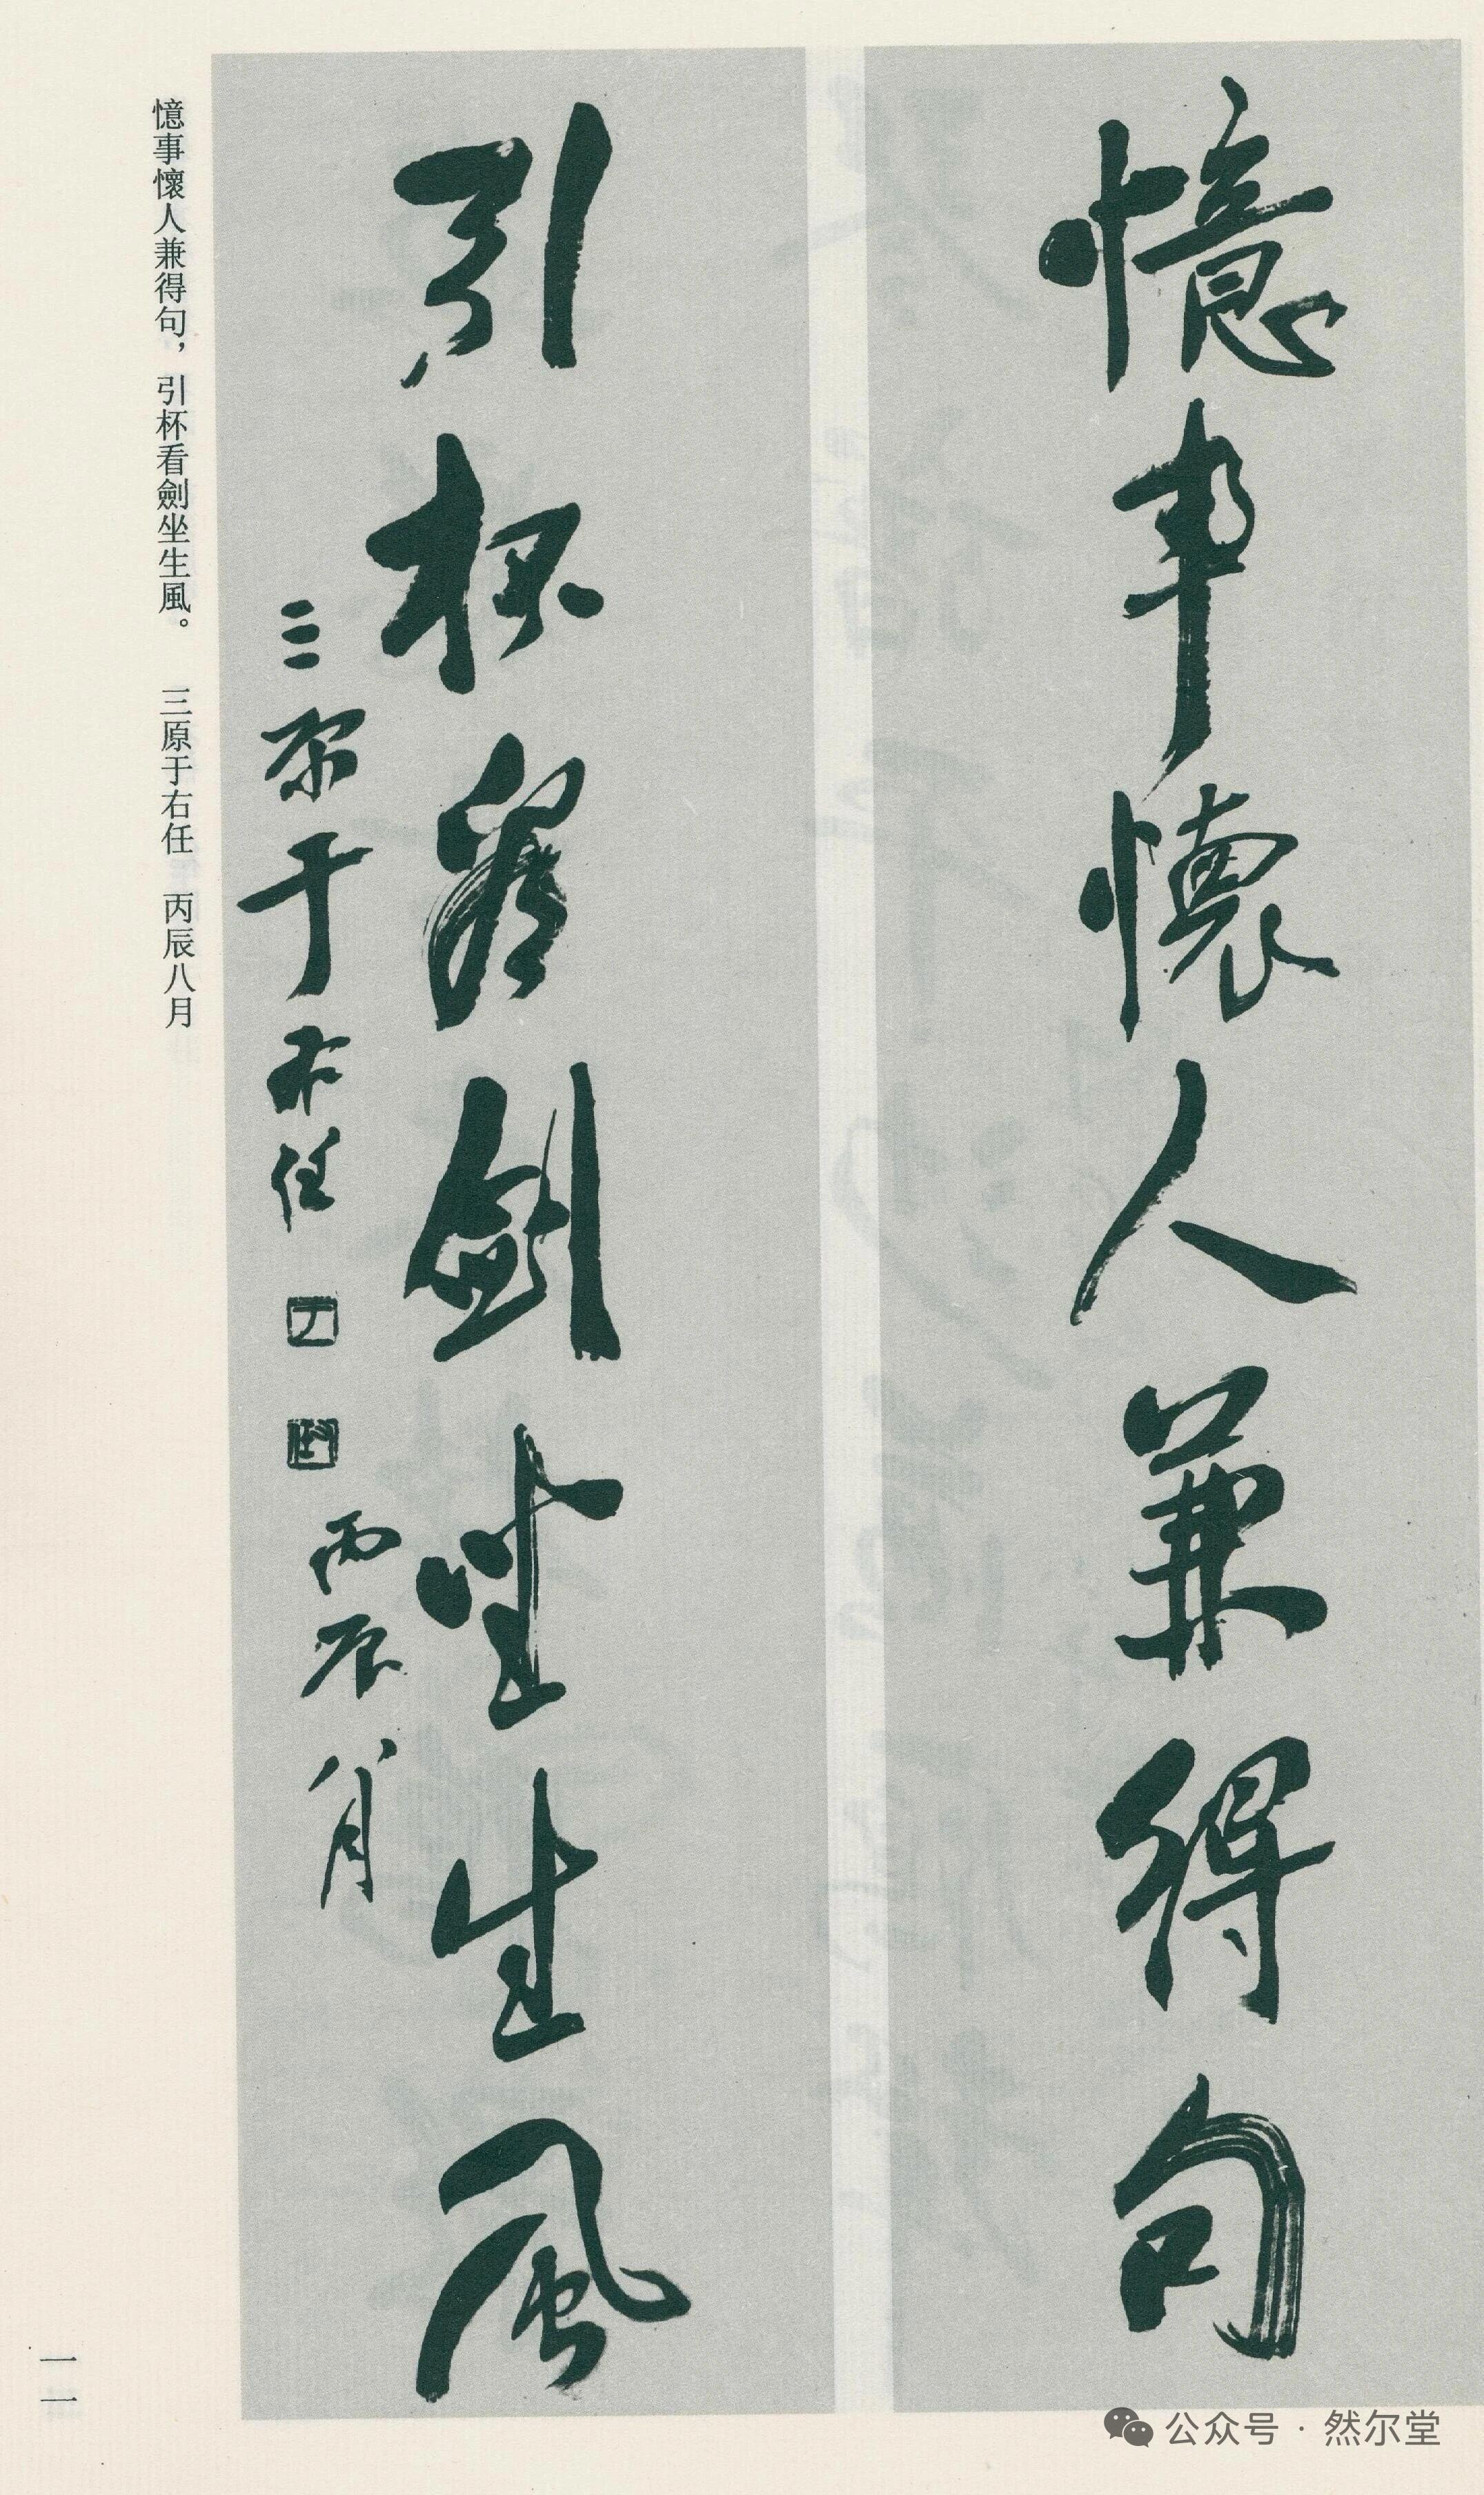 憶事懷人兼得句
引杯看劍坐生風
三原于右任
丙辰八月
憶事懷人兼得句，引杯看劍坐生風。 三原于右任 丙辰八月
一一
公众号 · 然尔堂